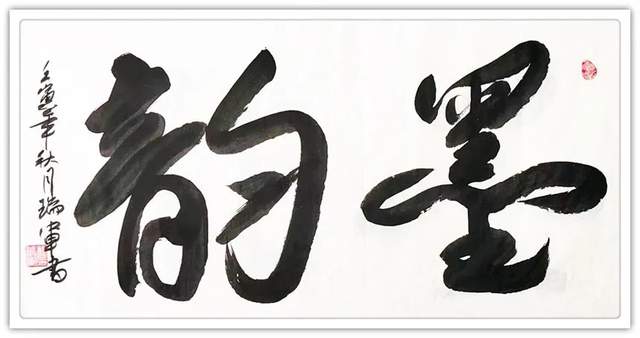 墨韵
壬寅年秋月瑞军书